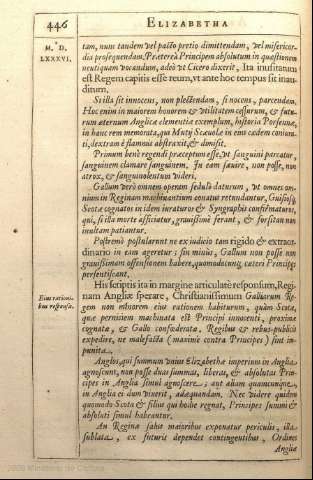 446 ELIZABETHA
M. D. LXXXVI.
tam, num tandem vel pacto pretio dimittendam, vel misericor-
dia prosequendam. Præterea Principem absolutum in quæstionem
neutiquam vocandum, adeò vt Cicero dixerit, Ita inusitatum
est Regem capitis esse reum, vt ante hoc tempus sit inau-
ditum.
Si illa sit innocens, non plectendam, si nocens, parcendam.
Hoc enim in maiorem honorem & vtilitatem cessurum, & futu-
rum æternum Anglicæ clementiæ exemplum, historia Porsennæ,
in hanc rem memorata, qui Mutij Scæuolæ in eius cædem coniura-
ti, dextram è flammis abstraxit, & dimisit.
Primum benè regendi præceptum esse, vt sanguini parcatur,
sanguinem clamare sanguinem, in eam sæuire, non posse, non
atrox, & sanguinolentum videri.
Gallum verò omnem operam sedulò daturum, vt omnes om-
nium in Reginam machinantium conatus retundantur, Guisios,
Scotæ cognatos in idem iuraturos & Syngraphis confirmaturos,
qui, si illa morte afficiatur, grauissimè ferant, & forsitan non
inultam patiantur.
Postremò postularunt ne ex iudicio tam rigido & extraor-
dinario in eam ageretur; sin minùs, Gallum non posse non
grauissimam offensionem habere, quomodocunq; cæteri Principes
persentiscant.
His scriptis ita in margine articulatè responsum, Regi-
nam Angliæ sperare, Christianissimum Galliarum Re-
gem non minorem eius rationem habiturum, quàm Scotæ,
quæ perniciem machinata est Principi innocenti, proximæ
cognatæ, & Gallo confœderatæ. Regibus & rebus-publicis
expedire, ne malefacta (maximè contra Principes) sint im-
punita.
Eius rationi-
bus responsum.
Anglos, qui summum vnius Elizabethæ imperium in Anglia
agnoscunt, non posse duas summas, liberas, & absolutas Prin-
cipes in Anglia simul agnoscere; aut aliam quamcunque,
in Anglia ei dum viuerit, adæquandam. Nec videre quidem
quomodo Scota & filius qui hodie regnat, Principes summi &
absoluti simul habeantur.
An Reginæ salus maioribus exponatur periculis, illa
sublata, ex futuris dependet contingentibus, Ordines
Angliæ